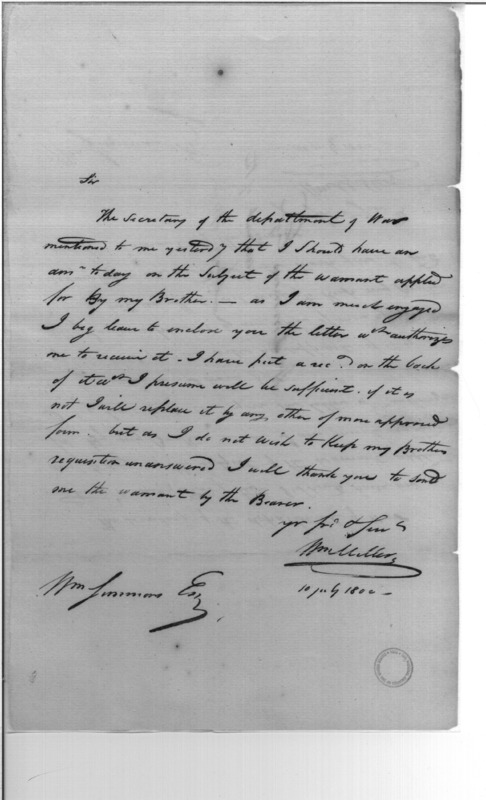 Sir
The Secretary of the department of War
mentioned to me yesterday that I should have an
ansr to day on the Subject of the warrant applied
for By my Brother. — as I am much engaged
I beg leave to enclose you the letter wch authorizes
me to receive it - I have put a rect on the back
of it wch I presume will be sufficient. if it is
not I will replace it by any other of more approved
form. but as I do not wish to Keep my Brothers
requisition unanswered I will thank you to send
me the warrant by the Bearer.
yr frd & Servt
Wm Miller
10 July 1800 -
Wm Simmons Esqr